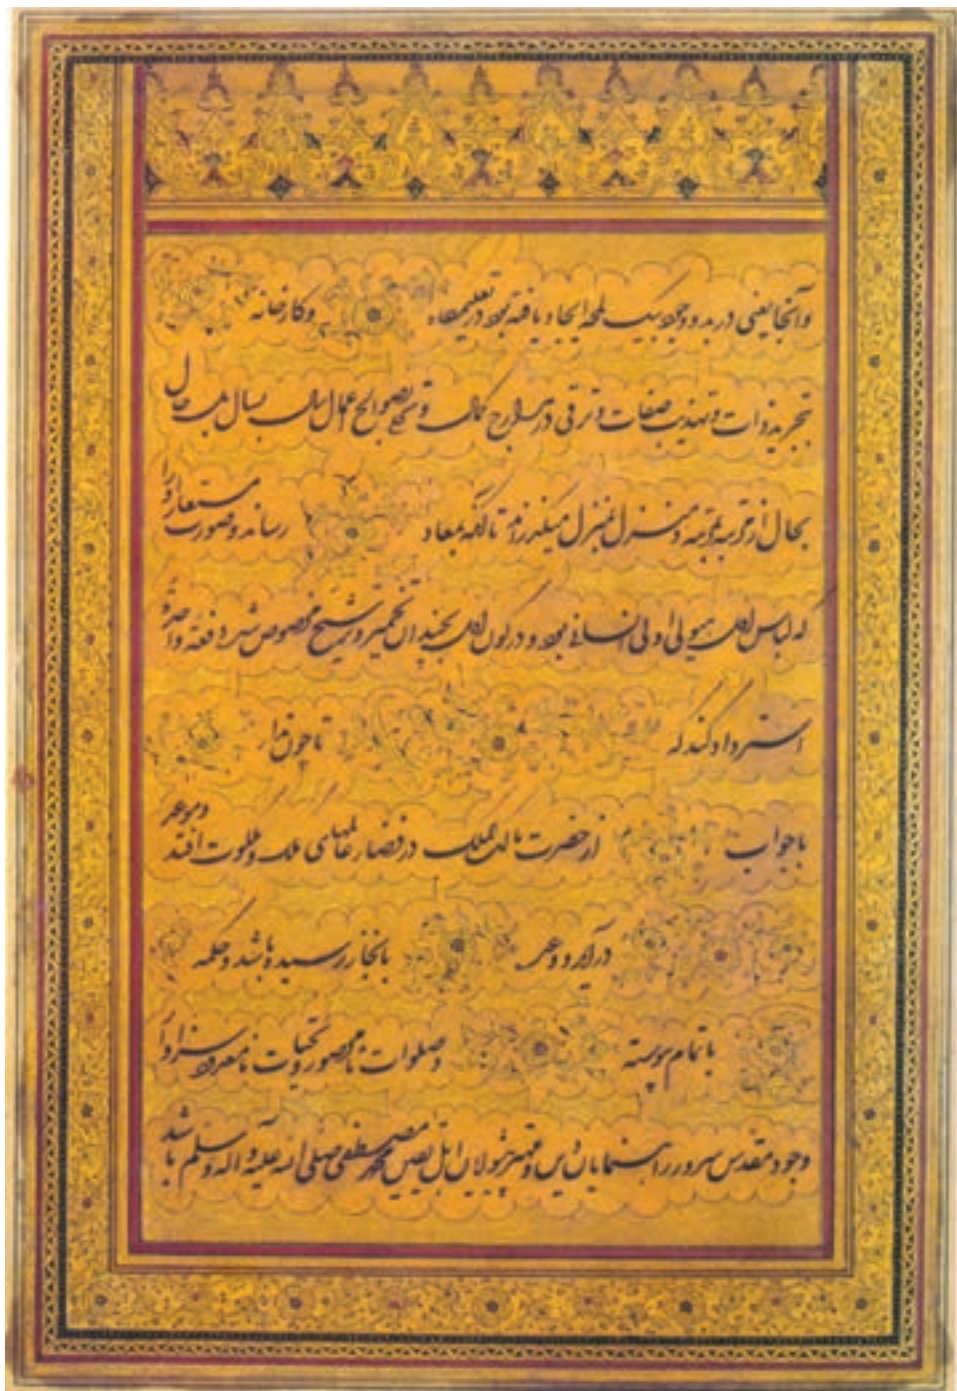 وآنجا یعنی در بدو وجود بیک لمحه ایجاد یافته بود در تعلیمگاه وکارخانه
تجرید ذات و تهذیب صفات و ترقی در مدارج کمال و تحلی بصوالح اعمال سال بسال
بحال از مرتبه بمرتبه و منزل بمنزل میگذرند تا آنکه بمعاد رساند و صورت مستعار را
که لباس هیولی اولی بود و در کون مخصوص شد دفعة واحدة
استرداد کنند که تا چون ندا
با جواب از حضرت مالک الملک در فضاء عالمهای ملک و ملکوت افتد و موعد
در آید و وعد بانجاز رسیده باشد و حکمه
باتمام پیوسته و صلوات نامحصور و تحیات نامعدود سزاوار
وجود مقدس سرور راهنمایان دین و مهتر اهل یقین محمد مصطفی صلی الله علیه و آله وسلم باشد